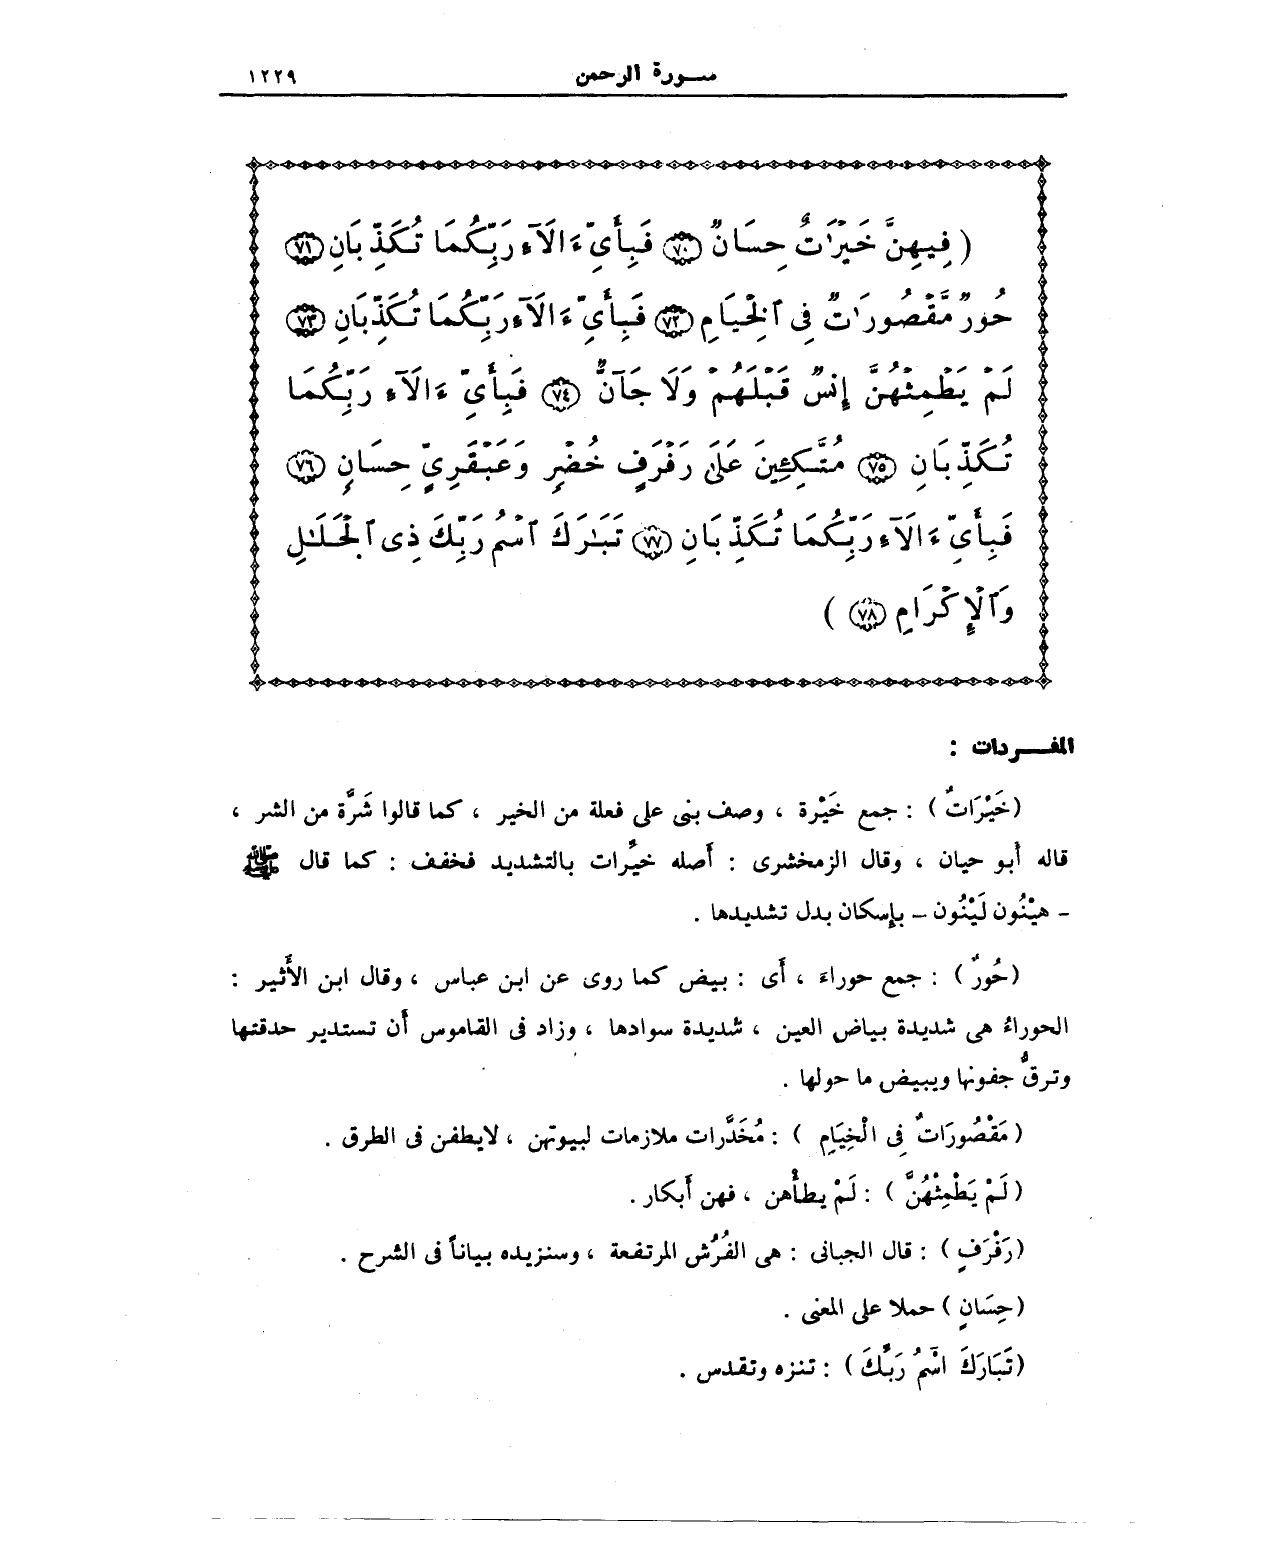 سورة الرحمن ١٢٢٩
( فِيهِنَّ خَيْرَٰتٌ حِسَانٌ ٧٠ فَبِأَيِّ ءَالَآءِ رَبِّكُمَا تُكَذِّبَانِ ٧١
حُورٌ مَّقْصُورَٰتٌ فِى ٱلْخِيَامِ ٧٢ فَبِأَيِّ ءَالَآءِ رَبِّكُمَا تُكَذِّبَانِ ٧٣
لَمْ يَطْمِثْهُنَّ إِنسٌ قَبْلَهُمْ وَلَا جَآنٌّ ٧٤ فَبِأَيِّ ءَالَآءِ رَبِّكُمَا
تُكَذِّبَانِ ٧٥ مُتَّكِـِٔينَ عَلَىٰ رَفْرَفٍ خُضْرٍ وَعَبْقَرِيٍّ حِسَانٍ ٧٦
فَبِأَيِّ ءَالَآءِ رَبِّكُمَا تُكَذِّبَانِ ٧٧ تَبَٰرَكَ ٱسْمُ رَبِّكَ ذِى ٱلْجَلَٰلِ
وَٱلْإِكْرَامِ ٧٨ )
المفردات :
(خَيْرَاتٌ) : جمع خَيْرة ، وصف بنى على فعلة من الخير ، كما قالوا شَرَّة من الشر ،
قاله أبو حيان ، وقال الزمخشرى : أصله خيِّرات بالتشديد فخفف : كما قال ﷺ
- هيْنُون لَيْنُون - بإسكان بدل تشديدها .
(حُورٌ) : جمع حوراء ، أى : بيض كما روى عن ابن عباس ، وقال ابن الأثير :
الحوراءُ هى شديدة بياض العين ، شديدة سوادها ، وزاد فى القاموس أن تستدير حدقتها
وترقُّ جفونها ويبيض ما حولها .
(مَقْصُورَاتٌ فِى الْخِيَامِ ) : مُخَدَّرات ملازمات لبيوتهن ، لايطفن فى الطرق .
(لَمْ يَطْمِثْهُنَّ ) : لَمْ يطأْهن ، فهن أبكار .
(رَفْرَفٍ) : قال الجبائى : هى الفُرُش المرتفعة ، وسنزيده بياناً فى الشرح .
(حِسَانٍ) حملا على المعنى .
(تَبَارَكَ اسْمُ رَبِّكَ) : تنزه وتقدس .